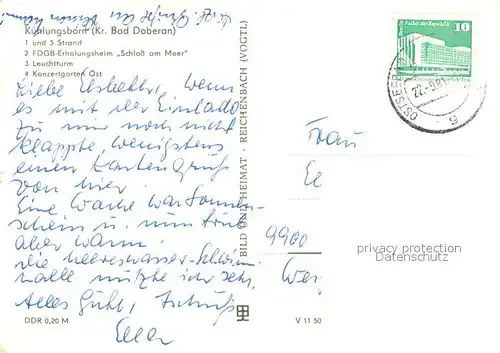 Herzl. Grüße an
Kühlungsborn (Kr. Bad Doberan)
1 und 5 Strand
2 FDGB-Erholungsheim „Schloß am Meer"
3 Leuchtturm
4 Konzertgarten Ost
Liebe Elsbeth, wenn
es mit der Einladg
zu mir noch nicht
klappte, wenigstens
einen Kartengruß
von hier.
Eine Woche war Sonnen-
schein u. nun trüb
aber warm.
Die Meereswasser-Schwimm
halle nützte ich sehr.
Alles Gute, Tschüß
DDR 0,20 M
BILD UND HEIMAT · REICHENBACH (VOGTL)
V 11 50
Palast der Republik
10
OSTSEEB
22.-9.81
Frau
9900
privacy protection
Datenschutz